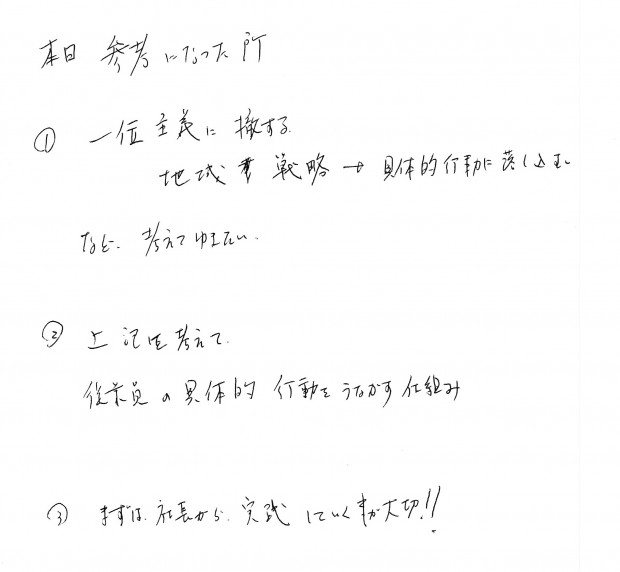 本日 参考になった所
① 一位主義に徹する
地域 戦略 → 具体的行動に落し込む
など、考えてゆきたい。
② 上記を考えて
従業員の具体的 行動をうながす仕組み
③ まずは、社長から、実践していく事が大切!!